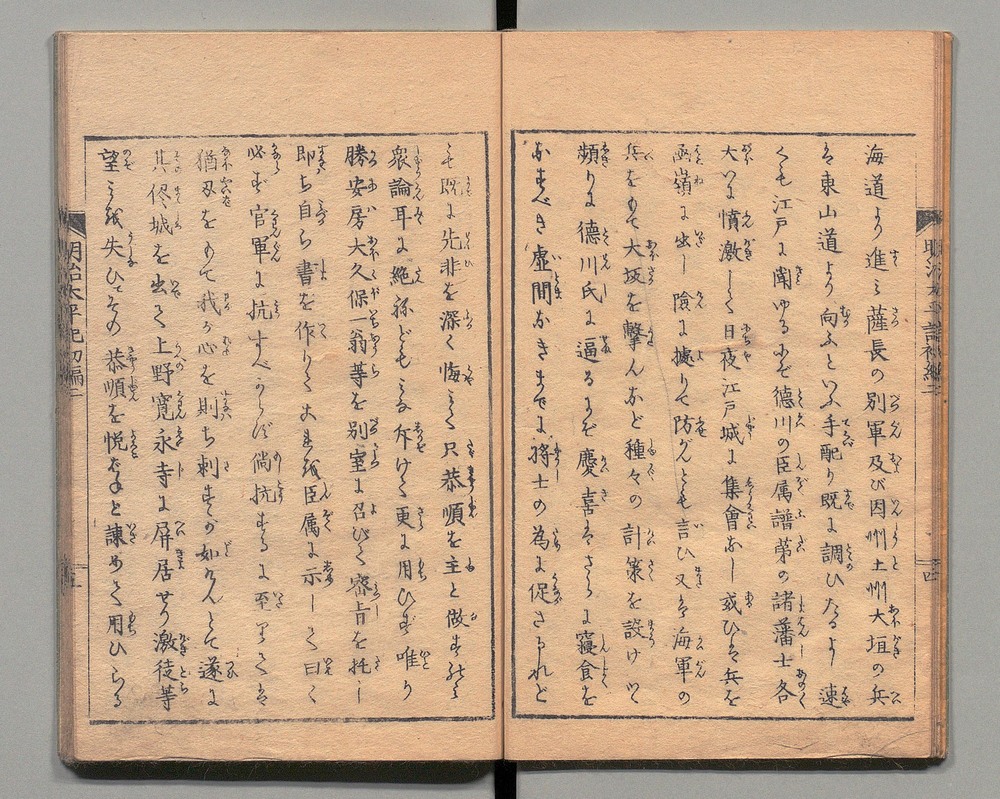 海道より進ミ薩長の別軍及び因州土州大垣の兵
ハ東山道より向ふといふ手配り既に調ひたるよし速
くも江戸に聞ゆるほど徳川の臣属譜第の諸藩士各
大いに憤激して日夜江戸城に集會なし或ひハ兵を
函嶺に出し險に據りて防がんとも言ひ又ハ海軍の
兵をもて大坂を撃んなど種々の計策を設けいく
頻りに徳川氏に逼るまで慶喜ハさらに寝食を
なすべき虚間なきまでに将士の為に促さるれど
も既に先非を深く悔ミて只恭順を主と做すれバ
衆論耳に絶ねどもミな斥けて更に用ひず唯り
勝安房大久保一翁等を別室に召びて密旨を托し
即ち自ら書を作りて是を臣属に示して曰く
必ず官軍に抗すべからず倘抗するに至りてハ
猶刃をもて我が心を刺すが如けんとて遂に
其侭城を出て上野寛永寺に屏居せり激徒等
望ミを失ひその恭順を悦ばずと諌めて用ひらる
明治太平記初編二
四
明治太平記初編二
五